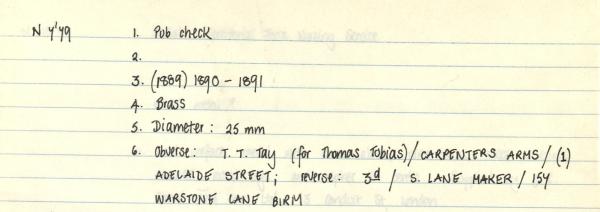 N Y'Y9 1. Pub check
2.
3. (1889) 1890 - 1891
4. Brass
5. Diameter: 25 mm
6. Obverse: T. T. Tay (for Thomas Tobias) / CARPENTERS ARMS / (1)
ADELAIDE STREET; reverse: 3d / S. LANE MAKER / 154
WARSTONE LANE BIRM